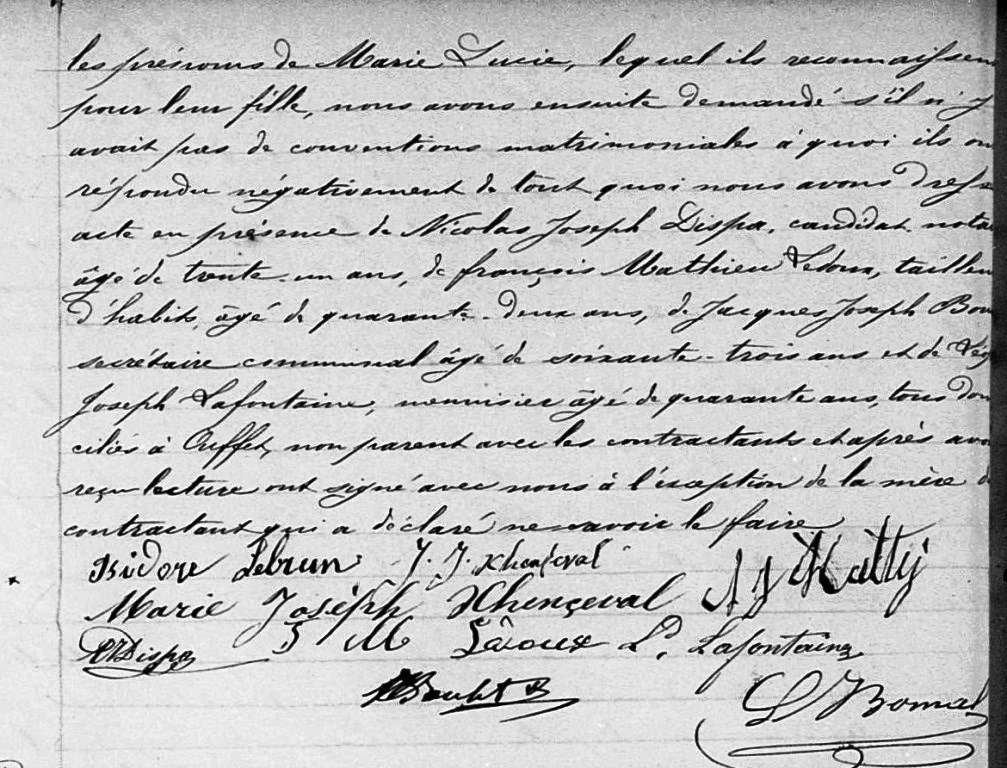 les prénoms de Marie Lucie, lequel ils reconnaissen
pour leur fille, nous avons ensuite demandé s'il n'y
avait pas de conventions matrimoniales à quoi ils on
répondu négativement de tout quoi nous avons dress
acte en présence de Nicolas Joseph Dispa, candidat nota
âgé de trente-un ans, de françois Mathieu Ledoux, tailleu
d'habits, âgé de quarante-deux ans, de Jacques Joseph Bom
secrétaire communal âgé de soixante-trois ans et de
Joseph Lafontaine, menuisier âgé de quarante ans, tous dom
ciliés à Ouffet, non parent avec les contractants et après avo
reçu lecture ont signé avec nous à l'exception de la mère d
contractant qui a déclaré ne savoir le faire
Isidore Lebrun J. J. Xhenseval
Marie Joséph Xhençeval
Dispa F M Ladoux L. Lafontaine
Bomal